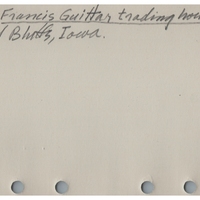 Francis Guittar trading hou
l Bluffs, Iowa.